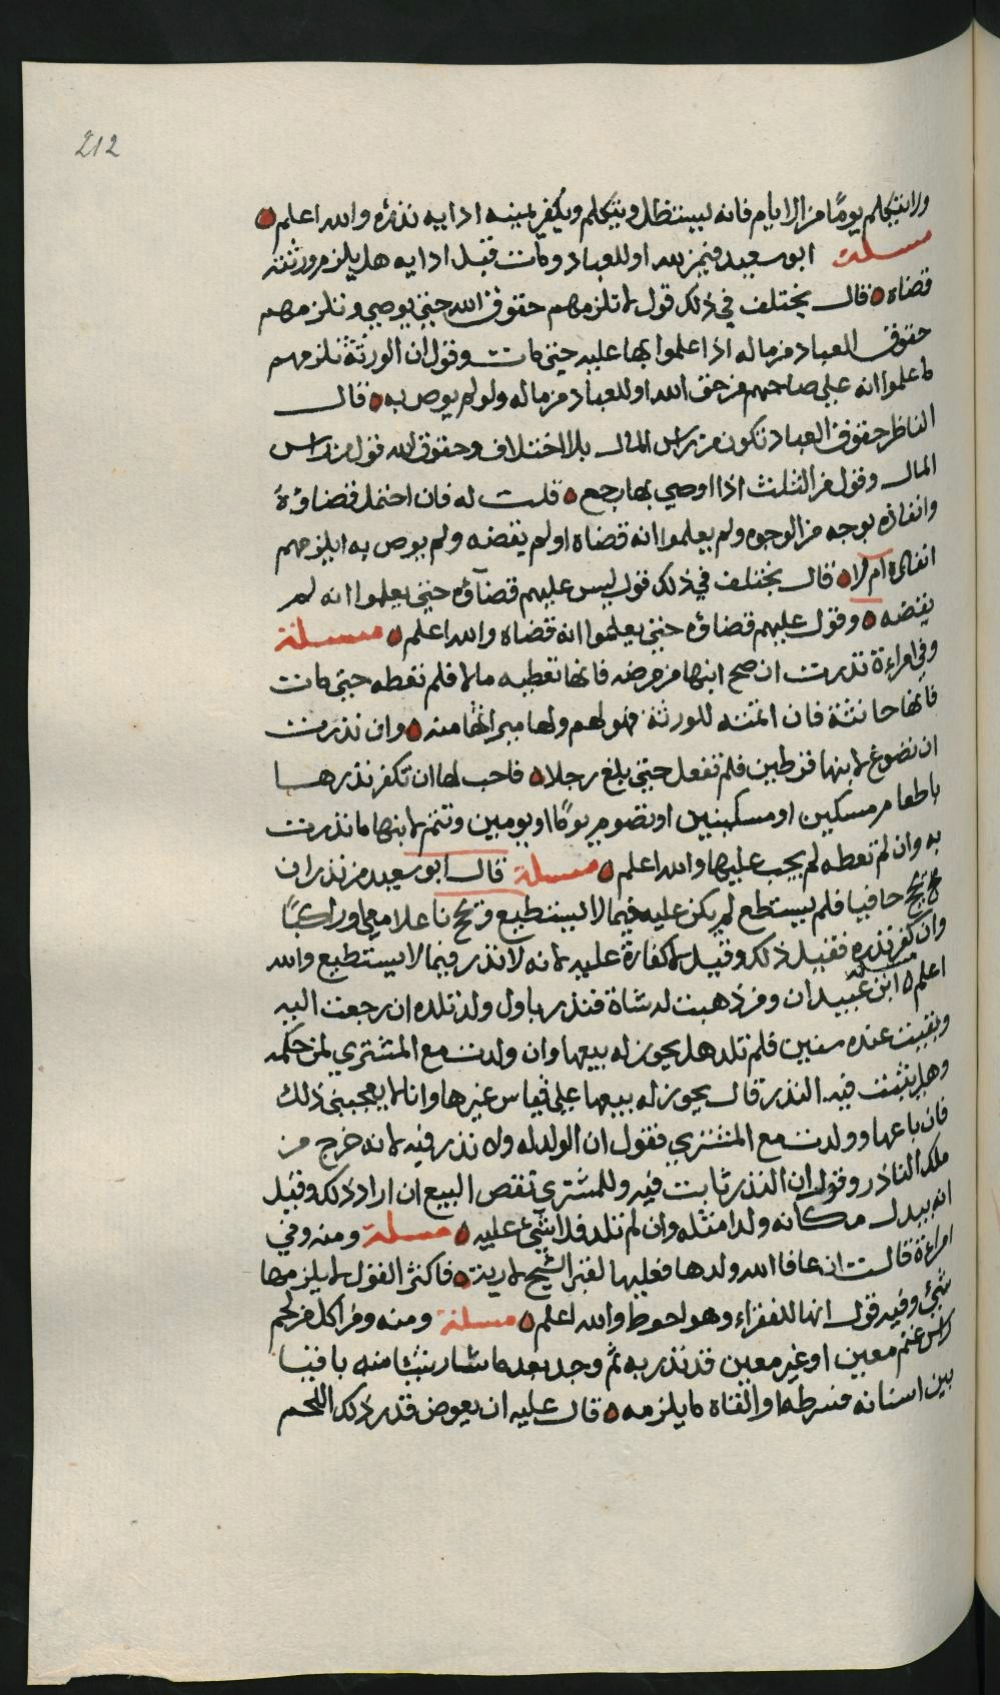 212
ولا يتكلم يومًا من الايام فانه ليستظل ويتكلم ويكفر يمينه اذا به نذره والله اعلم
مسئلة ابو سعيد فيمن لله او للعباد ومات قبل ادايه هل يلزم ورثته
قضاه قال يختلف في ذلك قول لا تلزمهم حقوق الله حتى يوصي وتلزمهم
حقوق العباد من ماله اذا علموا بها عليه حتى مات وقول ان الورثة تلزمهم
ما علموا انه على صاحبهم من حق الله او للعباد من ماله ولو لم يوص به قال
الناظر حقوق العباد تكون من راس المال بلا اختلاف وحقوق الله قول من راس
المال وقول من الثلث اذا اوصي بها رجع قلت له فان احتمل قضاؤهُ
وانفاذه بوجه من الوجوه ولم يعلموا انه قضاه او لم يقضه ولم يوص به ايلزمهم
انفاذه ام لا قال يختلف في ذلك قول ليس عليهم قضآؤه حتى يعلموا انه لم
يقضه وقول عليهم قضاؤه حتى يعلموا انه قضاه والله اعلم مسئلة
وفي امراءة نذرت ان صح ابنها من مرضه فانها تعطيه مالا فلم تعطه حتى مات
فانها حانثة فان اتمته للورثة فهو لهم ولها ميراثها منه وان نذرت
ان تصوغ لابنها قرطين فلم تفعل حتى بلغ رجلا فاحب لها ان تكفر نذرها
باطعام مسكين او مسكينين او تصوم يومًا او يومين وتتم لابنها ما نذرت
به وان لم تعطه لم يجب عليها والله اعلم مسئلة قال ابو سعيد من نذر ان
يحج حافيا فلم يستطع لم يكن عليه فيما لا يستطيع وحج ناعلا معي او راكبًا
وان كفر نذره فقيل ذلك وقيل لا كفارة عليه لانه لا نذر فيما لا يستطيع والله
اعلم مسئلة ابن عبيدان ومن ذهبت له شاة فنذر باول ولد تلده ان رجعت اليه
وبقيت عنده سنين فلم تلد هل يجوز له بيعها وان ولدت مع المشتري لمن حكمه
وهل يثبت فيه النذر قال يجوز له بيعها على قياس غيرها وانا لا يعجبني ذلك
فان باعها وولدت مع المشتري فقول ان الولد له ولا نذر فيه لانه خرج من
ملك الناذر وقول ان النذر ثابت فيه وللمشتري نقص البيع ان اراد ذلك وقيل
انه يبدل مكانه ولدا مثله وان لم تلد فلا شيء عليه مسئلة ومنه وفي
امراءة قالت ان عافا الله ولدها فعليها لقبر الشيخ فاكثر القول لا يلزمها
شيء وفيه قول انها للفقراء وهو احوط والله اعلم مسئلة ومنه ومن اكل من لحم
راس غنم معين او غير معين قد نذر به ثم وجد بعد ما شار شيئا منه باقيا
بين اسنانه فسرطه او القاه ما يلزمه قال عليه ان يعوض قدر ذلك اللحم